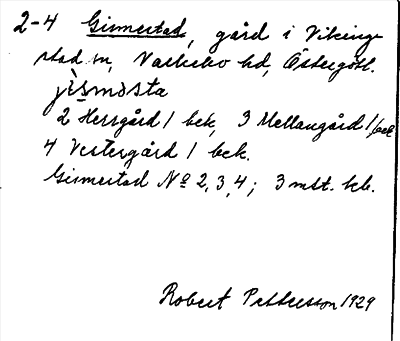 2-4 Gismestad, gård i Viking-
stad sn, Valkebo hd, Östergötl.
jìsmösta
2 Herrgård 1 bek, 3 Mellangård 1 bek
4 Vestergård 1 bek.
Gismestad Nº 2, 3, 4; 3 mst. kb.
Robert Pettersson 1929